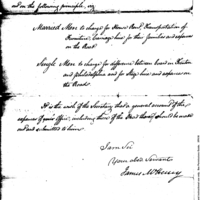 and on the following principle, viz
Married Men to charge for House Rent, Transportation of
Furniture, Carriage hire for their families and expences
on the Road
Single Men to charge for difference between board in Trenton
and Philadelphia and for Stage hire and expences on
the Roads.
It is the wish of the Secretary that a general account of the
expences of your Office, including those of the Head thereof should be made
out and submitted to him
I am Sir
Your obed Servant
James McHenry